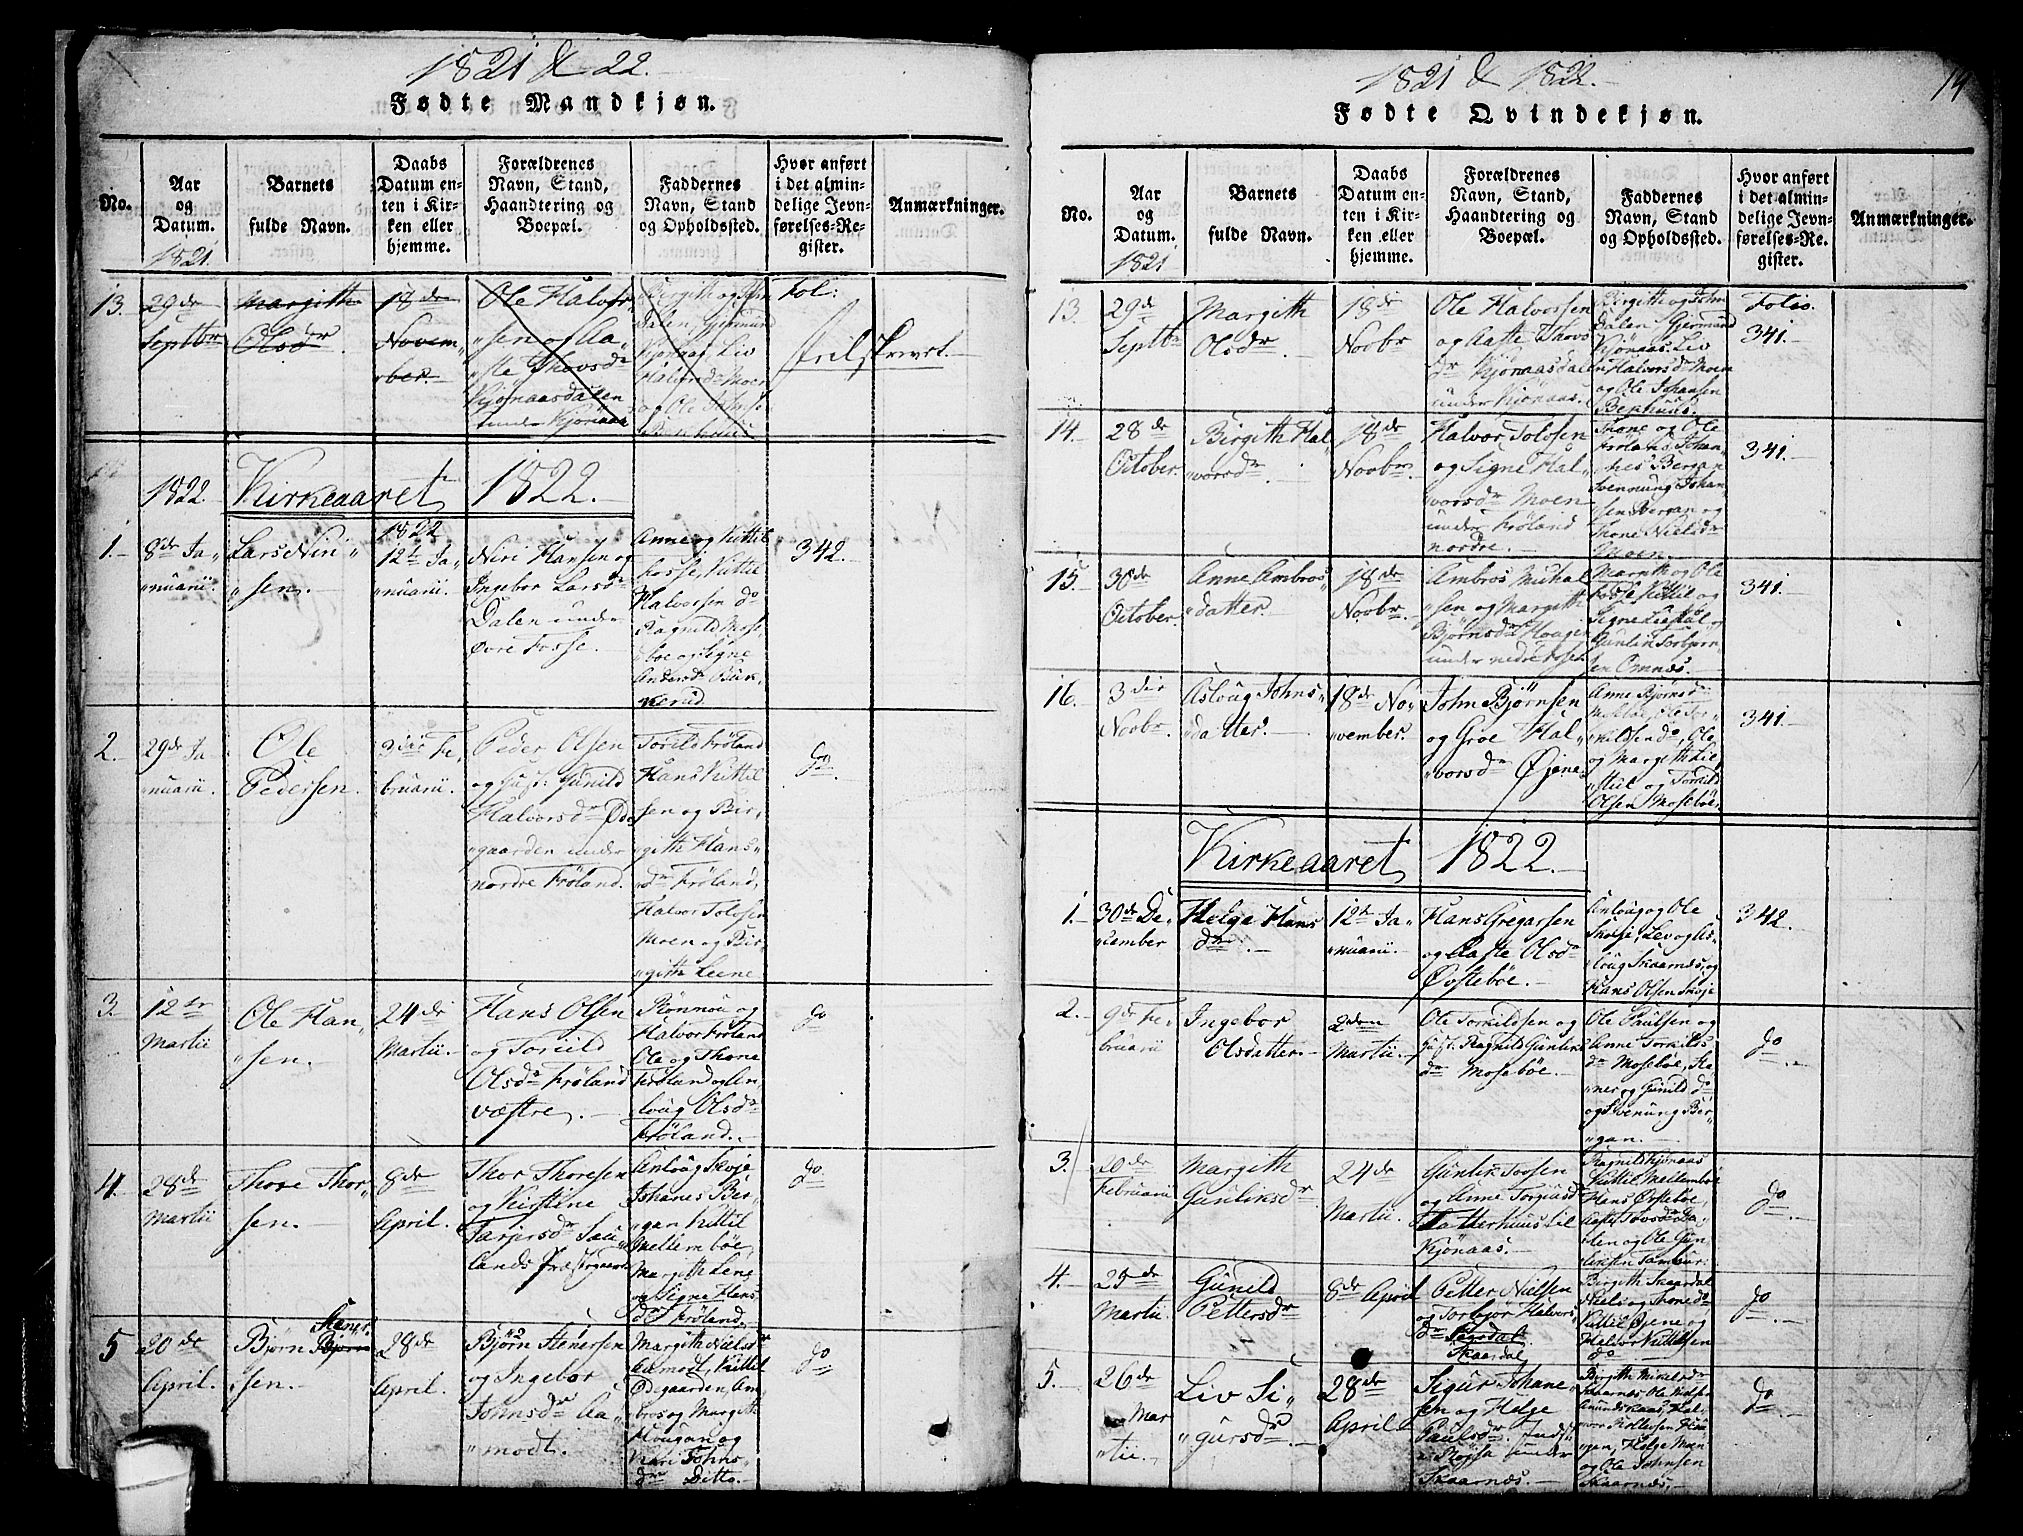 1821 & 22.
Fødte Mandkjøn.
No.
Aar
og
Datum.
1821.
Barnets
fulde Navn.
Daabs
Datum en-
ten i Kir-
ken eller
hjemme.
Forældrenes
Navn, Stand,
Haandtering og
Boepæl.
Faddernes
Navn, Stand
og Opholdssted.
Hvor anført
i det almin-
delige Jevn-
førelses-Re-
gister.
Anmærkninger.
13.
29de
Septbr
Margith
Olsdr
18de
Novem-
ber.
Ole Halvor-
sen og Aa-
ste Thovsdr
Kjönaasdalen
under Kjönaas
Birgith og John
Dalen, Gjermund
Kjönaas, Liv
Halvorsdr Moen
og Ole Johanse
Fol:
1822
Kirkeaaret 1822.
1.
8de Ja-
nuarii.
Lars Niri-
sen.
1822
12te Ja-
nuarii.
Niri Hansen og
Ingebor Larsdr
Dalen under
Övre Fosse.
Anne og Kittil
Fosse, Kittil
Halvorsen do
Ragnild Mose-
böe og Signe
Andersdr Buk-
kerud.
342.
2.
29de Ja-
nuarii.
Ole
Pedersen.
3die Fe-
bruarii.
Peder Olsen
og Hust: Gunild
Halvorsdr Öde-
gaarden under
nordre Fröland.
Torild Fröland
Hans Kittil-
sen og Bir-
gith Hans-
dr Fröland,
Halvor Tolosen
Moen og Bir-
gith Leene
do
3.
12te
Martii
Ole Han-
sen.
24de
Martii.
Hans Olsen
og Torild
Olsdr Fröland
væstre.
Rönnou og
Halvor Fröland
Ole og Thone
Fröland og An-
loug Olsdr
Fröland.
do
4.
28de
Martii
Thore Thor-
sen.
8de
April.
Thor Thoresen
og Kirstine
Tarjersdr Sau-
lands Præstegaard
Anloug Skoje
Johanes Ber-
gan Kittil
Mellemböe,
Margith Lene
og Signe Hans-
dr Fröland
do
5
20de
April.
Björn Björn
Stener-
sen.
28de
April.
Björn Stenersen
og Ingebor
Johnsdr Aa-
modt.
Margith Nielsdr
Aamodt, Kittil
Ödegaarden, Am-
bros og Margith
Hougan og
Kari Johns-
dr Ditto.
do
1821 & 1822.
14
Fødte Qvindekjøn.
No.
Aar
og
Datum.
1821
Barnets
fulde Navn.
Daabs
Datum en-
ten i Kir-
ken eller
hjemme.
Forældrenes
Navn, Stand,
Haandtering og
Boepæl.
Faddernes
Navn, Stand
og Opholdssted.
Hvor anført
i det almin-
delige Jevn-
førelses-Re-
gister.
Anmærkninger.
13.
29de
Septbr
Margith
Olsdr
18de
Novbr
Ole Halvorsen
og Aaste Thovs
dr Kjönaasdalen
under Kjönaas.
Birgith og John
Dalen Gjermund
Kjönaas, Liv
Halvorsdr Moen
og Ole Johansen
Folio.
341.
14.
28de
October.
Birgith Hal-
vorsdr
18de
Novbr.
Halvor Tolosen
og Signe Hal-
vorsdr Moen
under Fröland
nordre.
Thone og Ole
Fröland, Johan-
nes Bergan
Svennung Johan-
sen Bergan og
Thone Nielsdr
Moen.
341.
15.
30de
October.
Anne Ambros-
datter.
18de
Novbr.
Ambros Mikal-
sen og Margith
Björnsdr Hougen
under nedre Fosse
og Ole
Fosse Kittil og
Signe Liestöl og
Gunlik Torbjörn-
sen Omnes.
341.
16.
3die
Novbr.
Asloug Johns-
datter.
18de No-
vember.
John Björnsen
og Groe Hal-
vorsdr Öjene
Anne Björnsdr
Moseböe, Ole Tor-
kildsen do, Ole
og Margith Lie-
stul og Torkild
Olsen Moseböe.
341.
Kirkeaaret 1822.
1.
30de De-
cember
Helga Hans
dr.
12te Ja-
nuarii.
Hans Gregarsen
og Aaste Olsdr
Östeböe.
Anloug og Ole
Skoje, Lev og As-
loug Skaarnes, og
Hans Olsen Skoje
342.
2.
9de Fe-
bruarii
Ingebor
Olsdatter.
2den
Martii.
Ole Torkildsen og
Hust. Ragnild Gunliks
dr Moseböe.
Ole Paulsen og
Anne Torkilds
dr Moseböe, Ha-
ner og Gunild do
og Svenung Ber-
gan.
do
3.
20de
Februarii
Margith
Gunliksdr
24de
Martii.
Gunlik Tovsen
og Anne Torgiusdr
Hatterhuus til
Kjönaas.
Ragnild Kjönaas
Kittil Mellemböe
Hans Östeböe,
Aaste Tovsdr Da-
len og Ole Gun-
liksen Tambur.
do
4.
25de
Martii.
Gunild
Pettersdr
8de April
Petter Nielsen
og Torbjör Halvors-
dr Skaardal
Birgith Skaardal
Niels og Thone do
Kittil Öjene og
Halvor Kittilsen
do
do
5.
26de
Mar-
tii.
Liv Si-
gursdr.
28de
April
Sigur Johane-
sen og Helge
Paulsdr. Indst
i Böjsa under
Skaarnes.
Birgith Mikelsdr
Skaarnes Ole
gen, Helge Moen
og Ole Johnsen
Skaarnes.
do